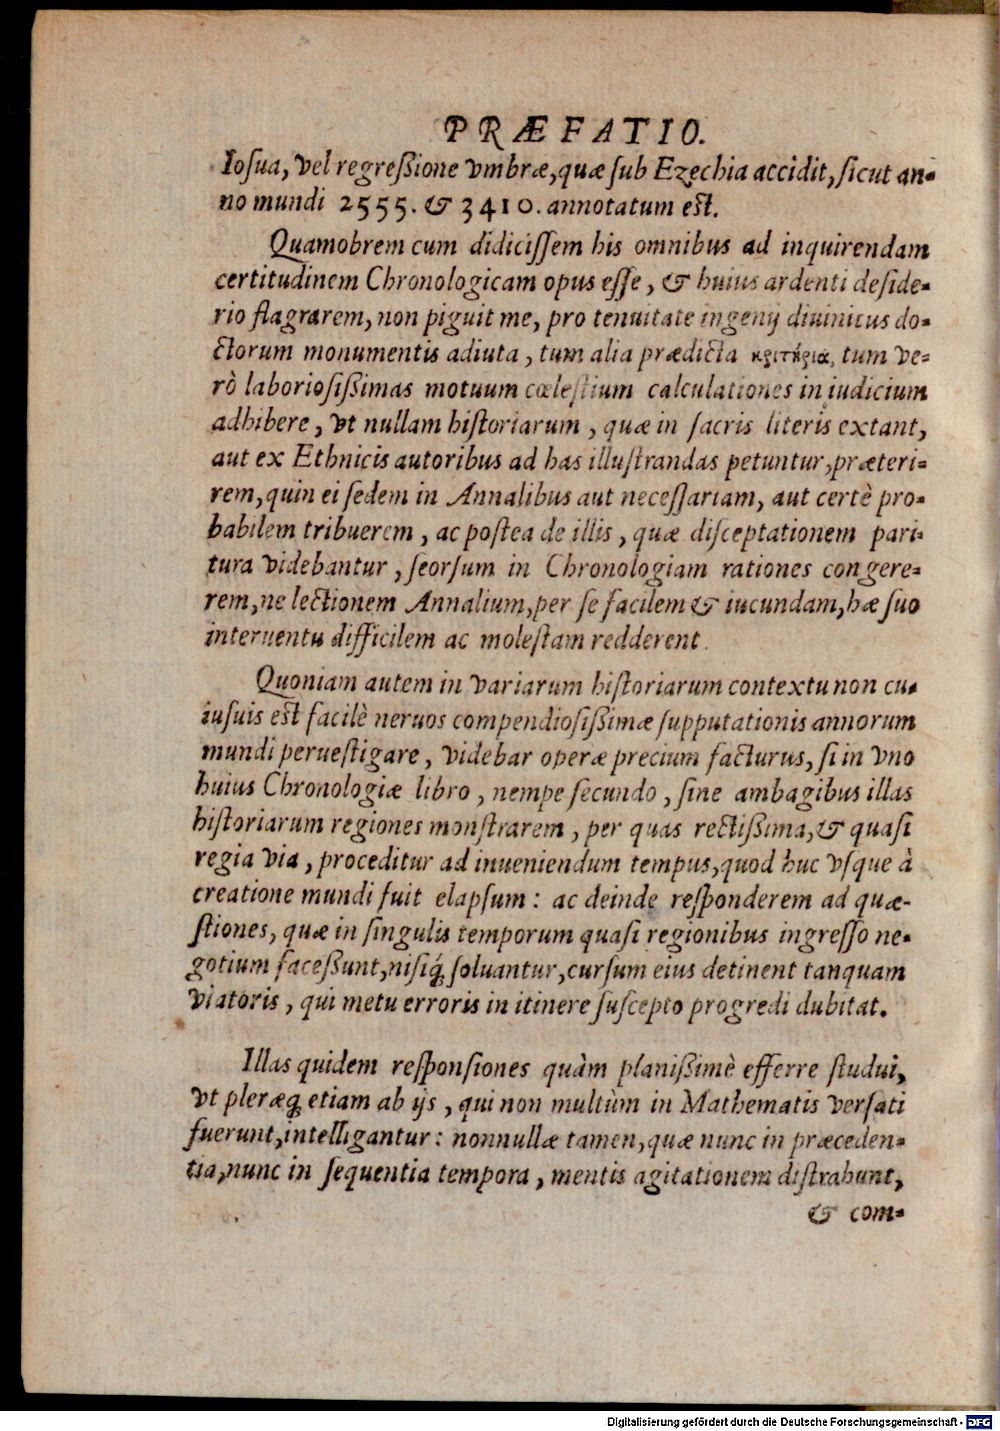 PRÆFATIO.
Iosua, vel regreßione vmbræ, quæ sub Ezechia accidit, sicut an-
no mundi 2555. & 3410. annotatum est.
Quamobrem cum didicissem his omnibus ad inquirendam
certitudinem Chronologicam opus esse, & huius ardenti deside-
rio flagrarem, non piguit me, pro tenuitate ingenij diuinitus do-
ctorum monumentis adiuta, tum alia prædicta κριτήρια, tum ve-
rò laboriosißimas motuum cœlestium calculationes in iudicium
adhibere, vt nullam historiarum, quæ in sacris literis extant,
aut ex Ethnicis autoribus ad has illustrandas petuntur, præteri-
rem, quin ei sedem in Annalibus aut necessariam, aut certè pro-
babilem tribuerem, ac postea de illis, quæ disceptationem pari-
tura videbantur, seorsum in Chronologiam rationes congere-
rem, ne lectionem Annalium, per se facilem & iucundam, hæ suo
interuentu difficilem ac molestam redderent.
Quoniam autem in variarum historiarum contextu non cu-
iusuis est facilè neruos compendiosißimæ supputationis annorum
mundi peruestigare, videbar operæ precium facturus, si in vno
huius Chronologiæ libro, nempe secundo, sine ambagibus illas
historiarum regiones monstrarem, per quas rectißima, & quasi
regia via, proceditur ad inueniendum tempus, quod huc vsque à
creatione mundi fuit elapsum: ac deinde responderem ad quæ-
stiones, quæ in singulis temporum quasi regionibus ingresso ne-
gotium faceßunt, nisiq́; soluantur, cursum eius detinent tanquam
viatoris, qui metu erroris in itinere suscepto progredi dubitat.
Illas quidem responsiones quàm planißimè efferre studui,
vt pleræq; etiam ab ijs, qui non multùm in Mathematis versati
fuerunt, intelligantur: nonnullæ tamen, quæ nunc in præceden-
tia, nunc in sequentia tempora, mentis agitationem distrahunt,
& com-
Digitalisierung gefördert durch die Deutsche Forschungsgemeinschaft - DFG